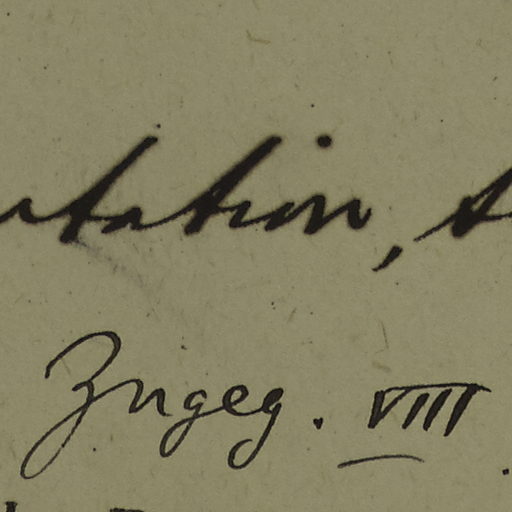 tation,
Zugeg. VIII